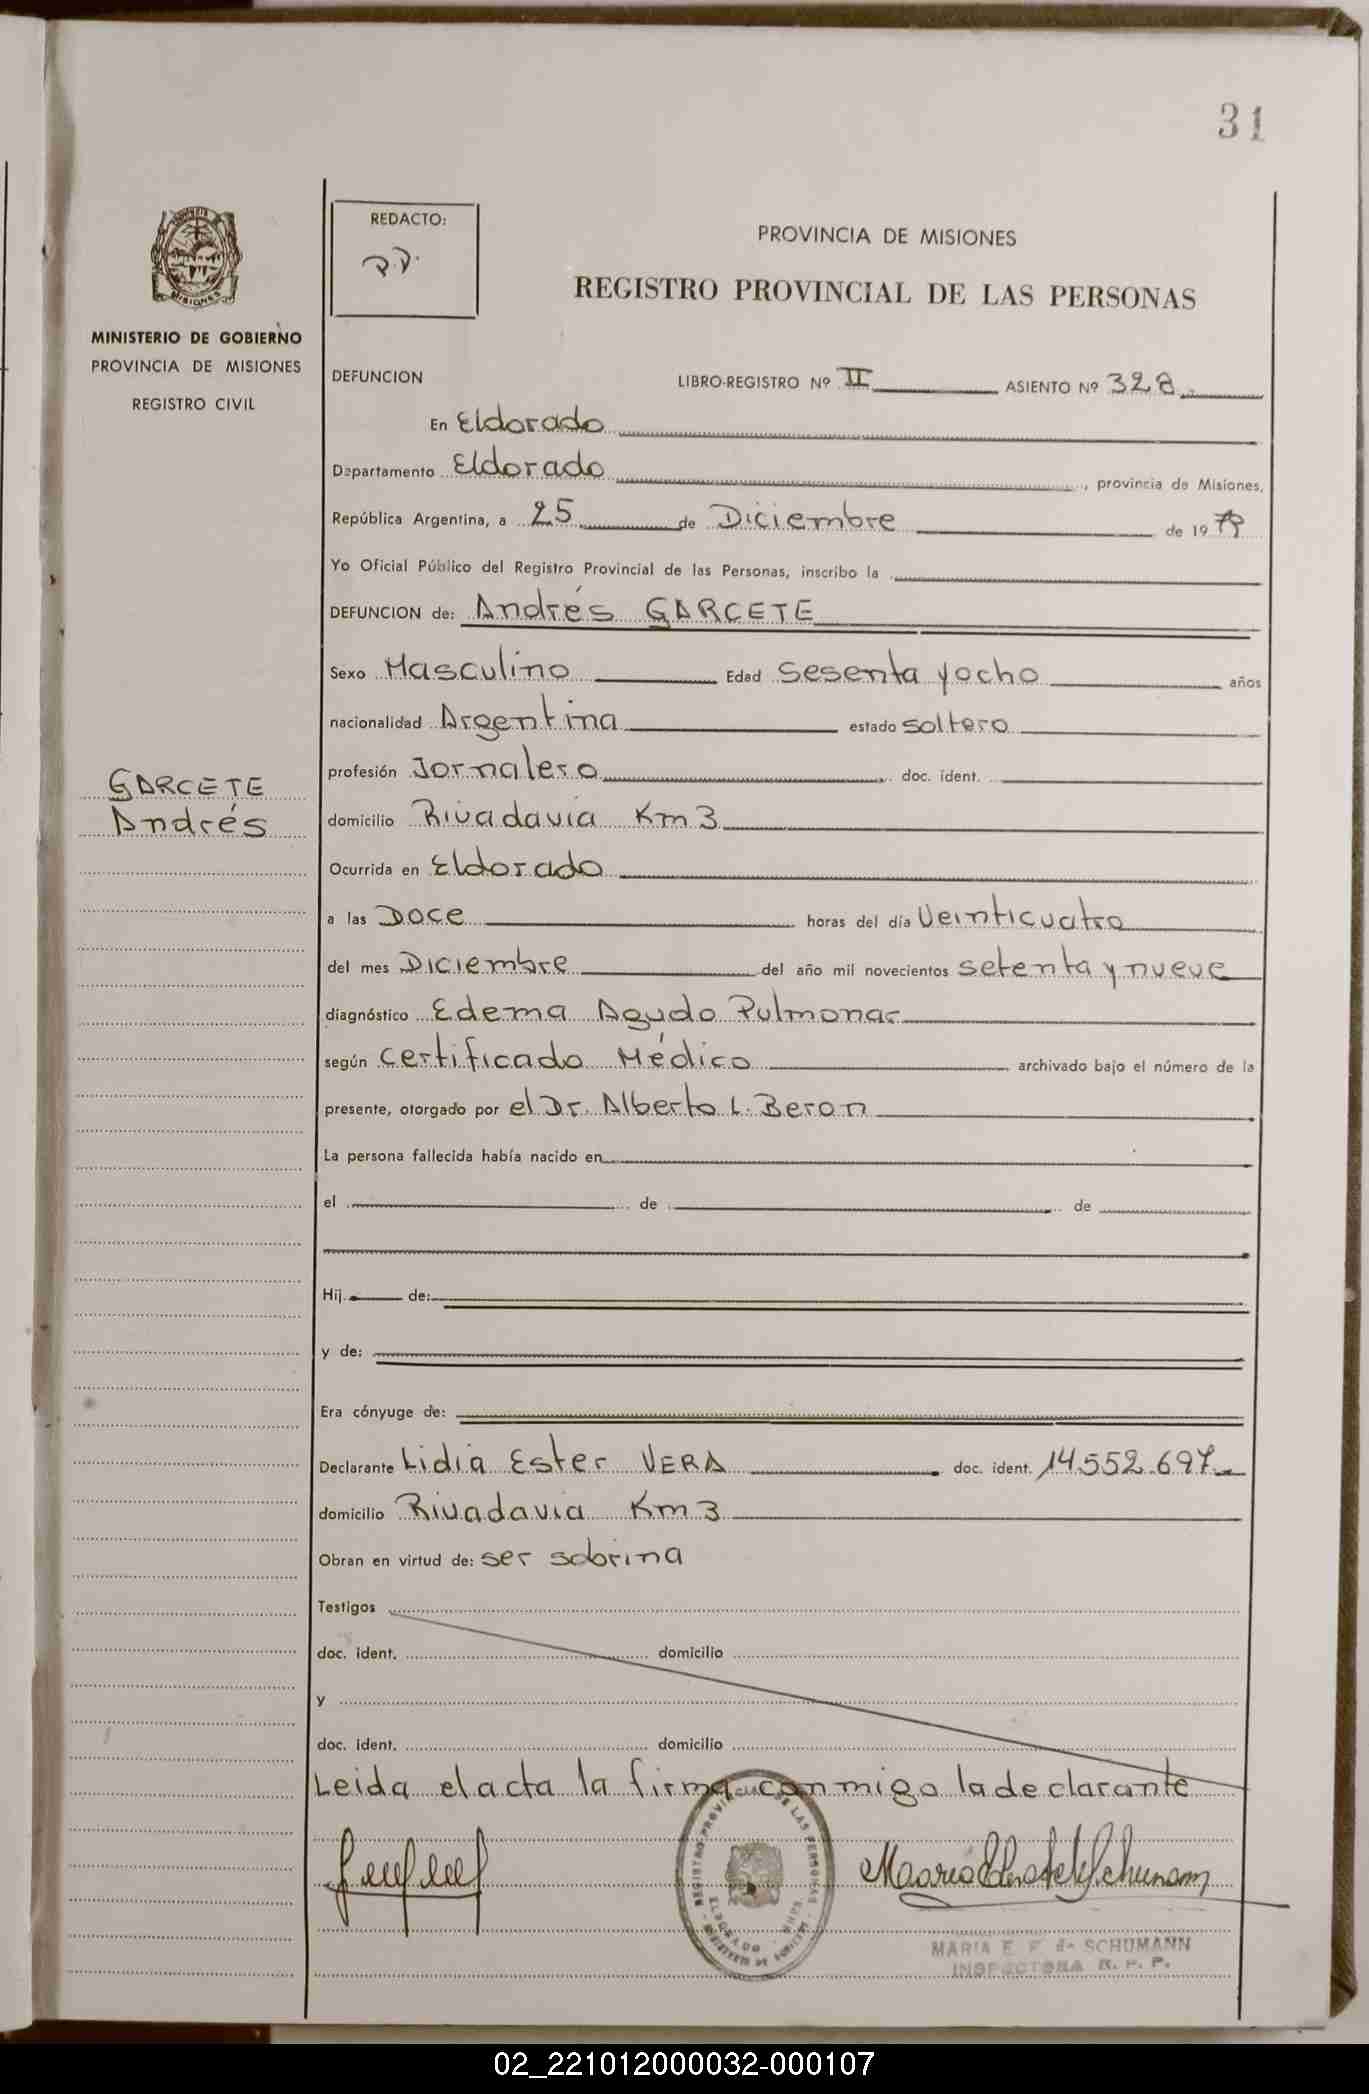 31
REDACTO:
PROVINCIA DE MISIONES
REGISTRO PROVINCIAL DE LAS PERSONAS
MISIONES
MINISTERIO DE GOBIERNO
PROVINCIA DE MISIONES
REGISTRO CIVIL
DEFUNCION LIBRO-REGISTRO Nº II ASIENTO Nº 328
En Eldorado
Departamento Eldorado, provincia de Misiones,
República Argentina, a 25 de Diciembre de 19
Yo Oficial Público del Registro Provincial de las Personas, inscribo la
DEFUNCION de: Andrés GARCETE
Sexo Masculino Edad Sesenta y ocho años
nacionalidad Argentina estado soltero
GARCETE
Andrés
profesión Jornalero doc. ident.
domicilio Rivadavia Km 3
Ocurrida en Eldorado
a las Doce horas del día Veinticuatro
del mes Diciembre del año mil novecientos setenta y nueve
diagnóstico Edema Agudo Pulmonar
según Certificado Médico archivado bajo el número de la
presente, otorgado por el Dr. Alberto L. Beron
La persona fallecida había nacido en
el de de
Hij de:
y de:
Era cónyuge de:
Declarante Lidia Ester VERA doc. ident. 14.552.697
domicilio Rivadavia Km 3
Obran en virtud de: ser sobrina
Testigos
doc. ident. domicilio
y
doc. ident. domicilio
Leida el acta la firma conmigo la declarante
REGISTRO PROVINCIAL DE LAS PERSONAS
ELDORADO
MARIA E. F. de SCHUMANN
INSPECTORA R. P. P.
02_221012000032-000107